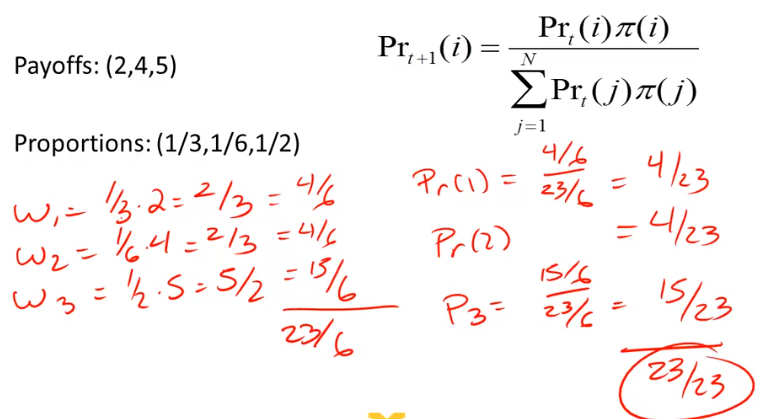 Payoffs: (2,4,5)
Pr_{t+1}(i) = Pr_t(i)π(i) / ∑_{j=1}^{N} Pr_t(j)π(j)
Proportions: (1/3,1/6,1/2)
w₁ = 1/3 · 2 = 2/3 = 4/6
w₂ = 1/6 · 4 = 2/3 = 4/6
w₃ = 1/2 · 5 = 5/2 = 15/6
23/6
Pr(1) = 4/6 / 23/6 = 4/23
Pr(2) = 4/23
P₃ = 15/6 / 23/6 = 15/23
23/23